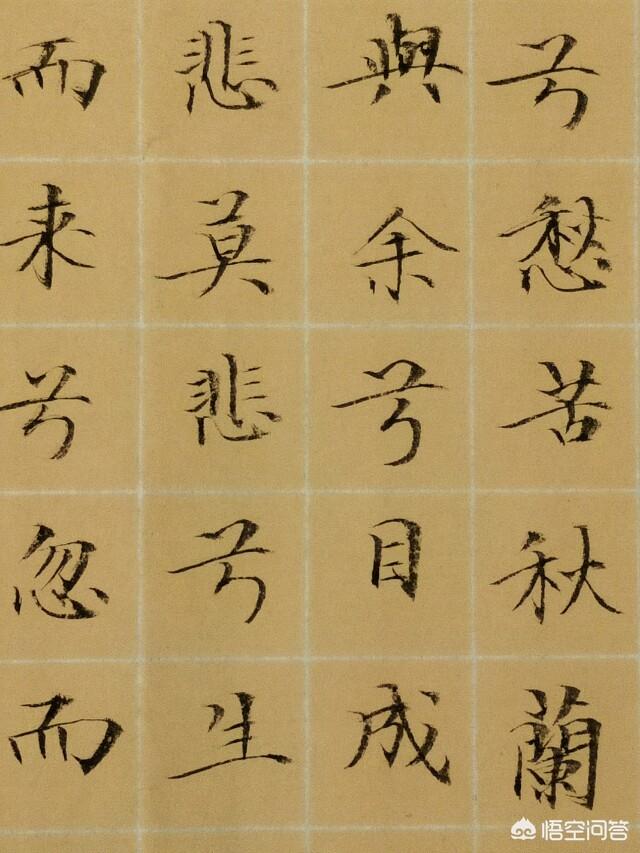 兮愁苦秋蘭
與余兮目成
悲莫悲兮生
而来兮忽而
悟空问答